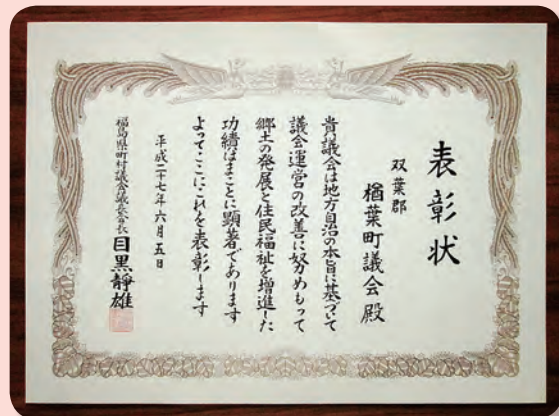 表彰状
双葉郡
楢葉町議会殿
貴議会は地方自治の本旨に基づいて
議会運営の改善に努めもって
郷土の発展と住民福祉を増進した
功績はまことに顕著であります
よってここにこれを表彰します
平成二十七年六月五日
福島県町村議会議長会会長 目黒静雄